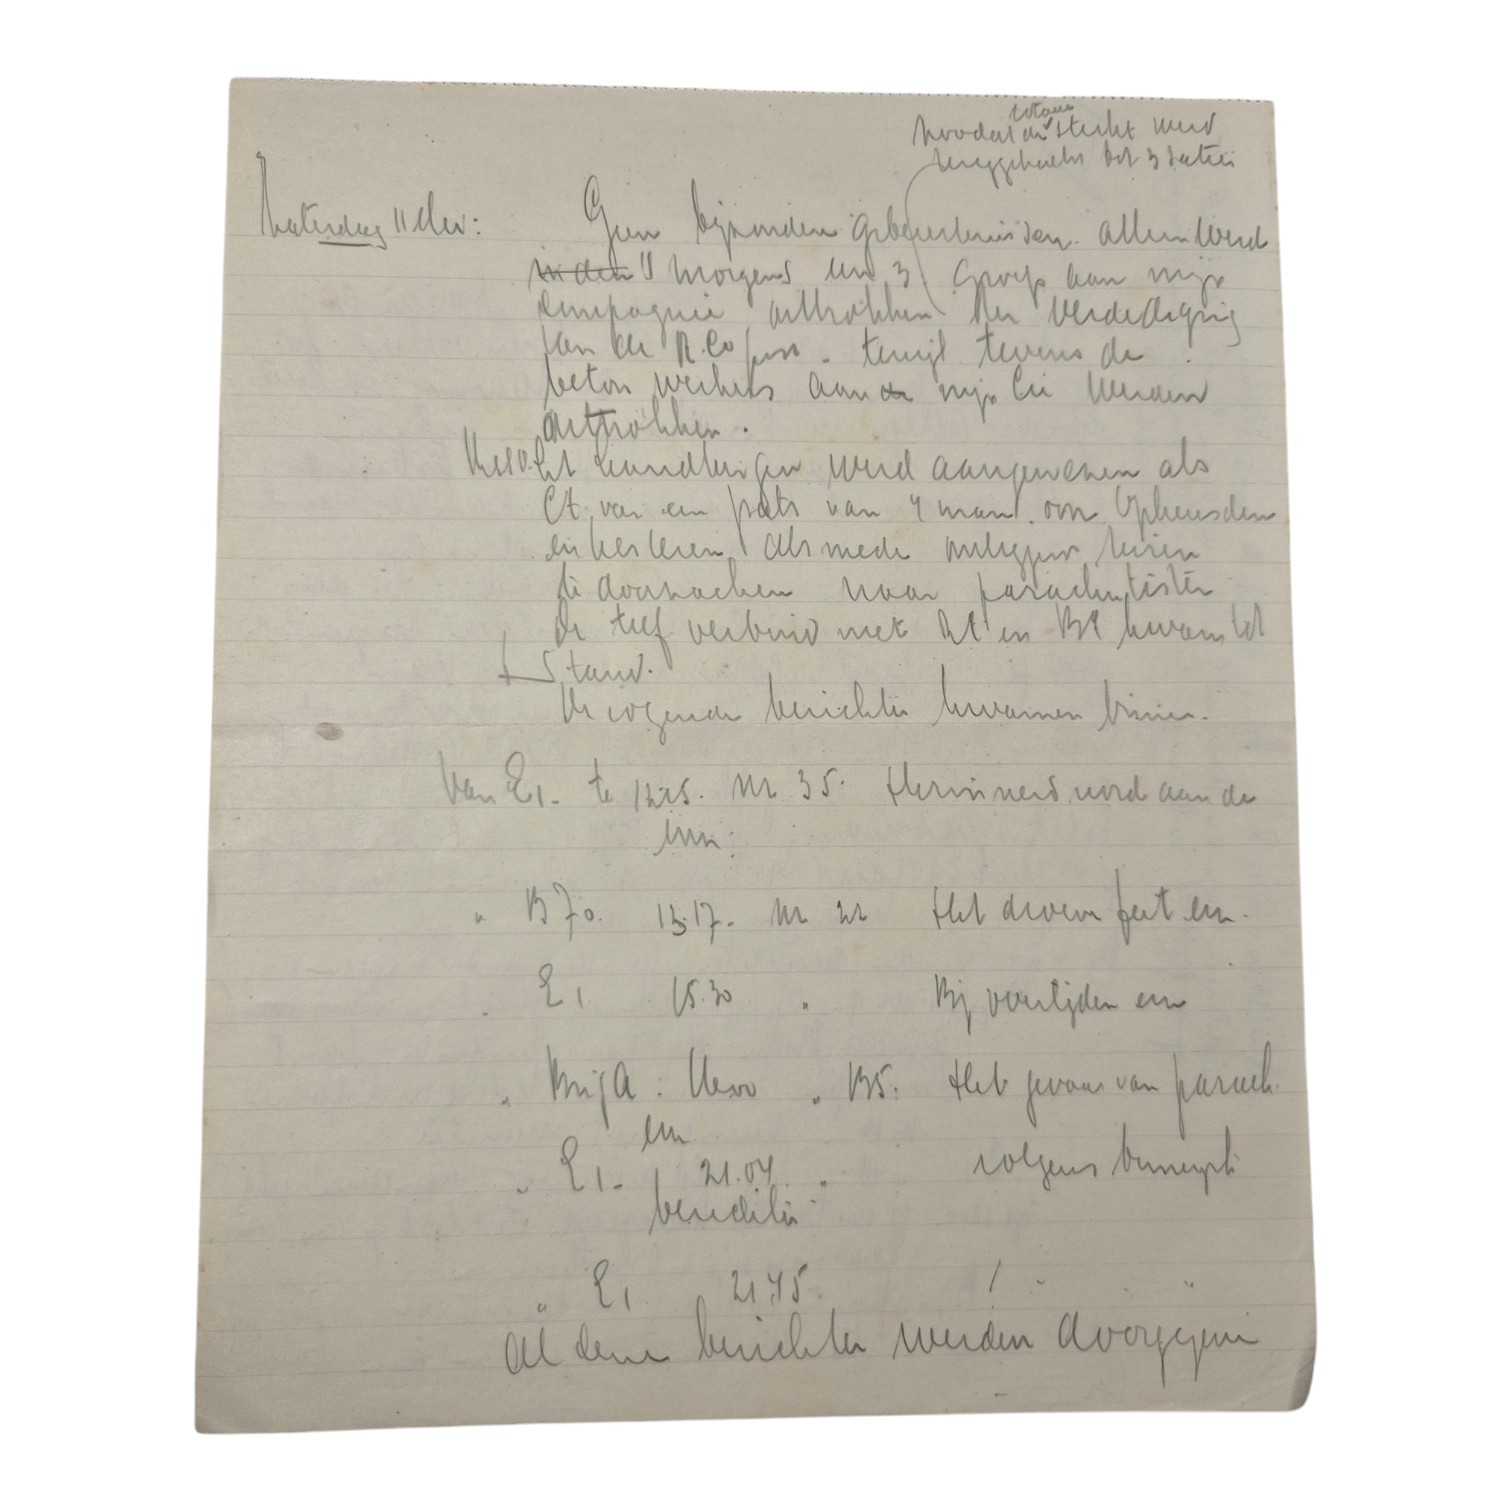 zoodat de totale sterkte werd
teruggebracht tot 3 secties
Zaterdag 11 Mei:
Geen bijzondere gebeurtenissen. alleen werd
in den 's morgens een 3 groep aan mijn
compagnie onttrokken ter verdediging
van de R.Co post. terwijl tevens de
beton werkers aan de mijn Cie werden
onttrokken.
Res. Lt werd aangewezen als
Ct. van een patr van 4 man om Opheusden
en Kesteren alsmede omliggend terrein
te doorzoeken naar parachutisten
De telf verbind met RC en BC kwam tot
stand.
De volgende berichten kwamen binnen.
Van E1. te 12.25. Nr 35. Herinnerd word aan de
enz:
" B70. 13.17. Nr 22 Het droeve feit enz.
" E1 15.30 " Bij overlijden enz
" Brig A: " B5. Het gevaar van parach.
enz
" E1. 21.04. " volgens bevestigde
berichten
" E1 21.45. / " "
Al deze berichten werden doorgegeven